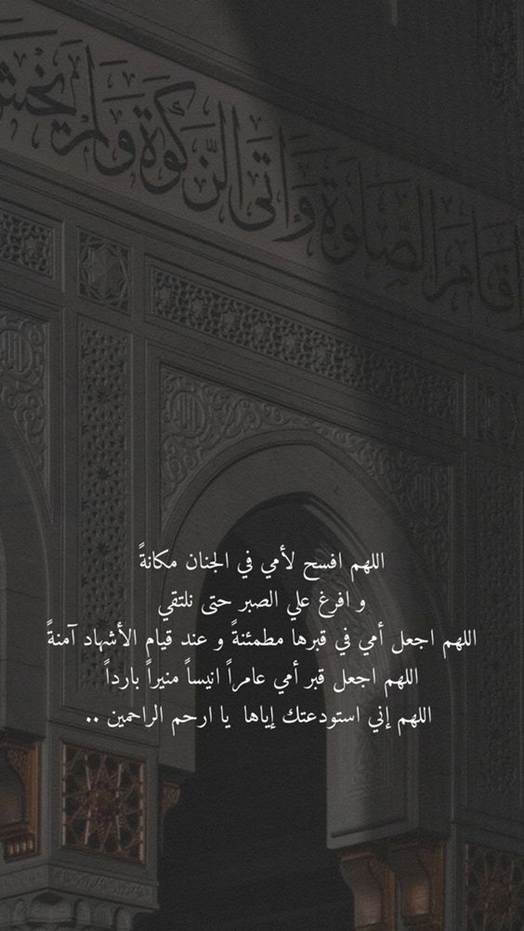 أقام الصلوة وآتى الزكوة ولم يخش
اللهم افسح لأمي في الجنان مكانةً
و افرغ علي الصبر حتى نلتقي
اللهم اجعل أمي في قبرها مطمئنةً و عند قيام الأشهاد آمنةً
اللهم اجعل قبر أمي عامراً انيساً منيراً بارداً
اللهم إني استودعتك إياها يا ارحم الراحمين ..